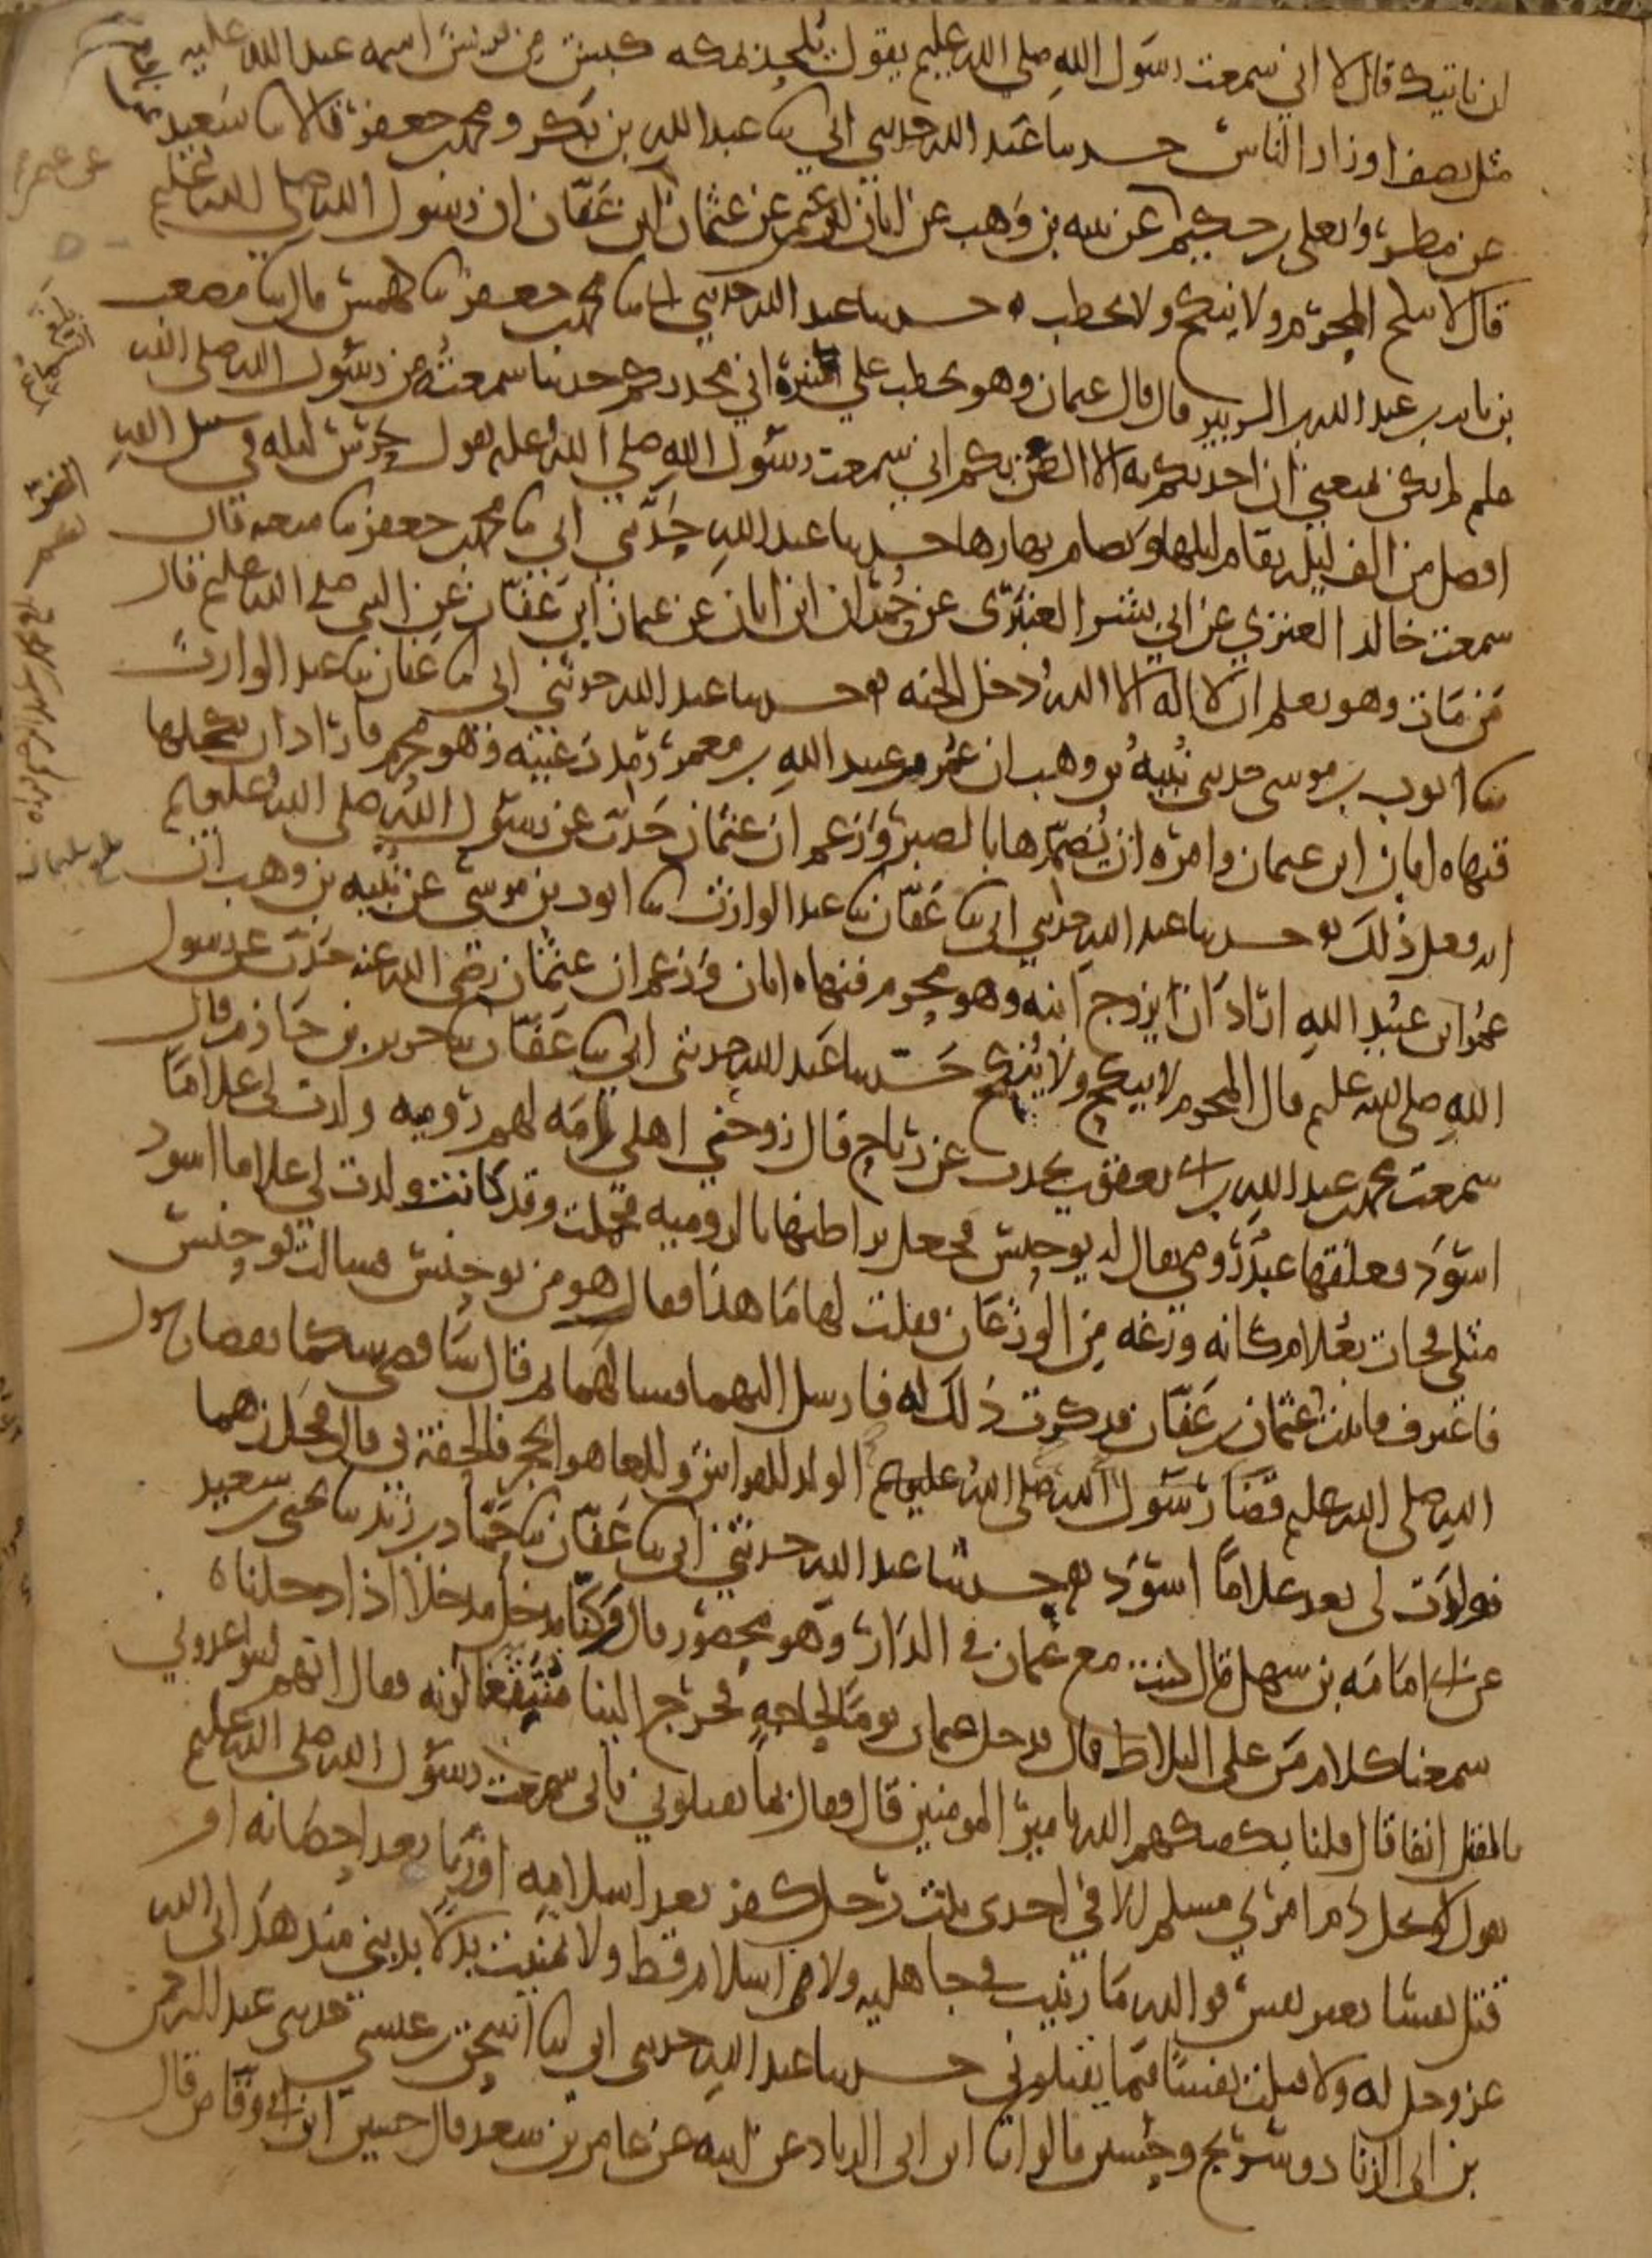 ان ناتيك قال لا اني سمعت رسول الله صلى الله عليه يقول يلحد بمكه كبش من قريش اسمه عبد الله عليه
مثل نصف اوزار الناس حدسا عبد الله حدثني ابي سا عبد الله بن بكر ومحمد بن جعفر قالا سا سعيد
عن مطر ويعلى بن حكيم عن نبيه بن وهب عن ابان بن عثمان عن عثمان ابن عفان ان رسول الله صلى الله عليه
قال لا ينكح المحرم ولا ينكح ولا يخطب ه حدسا عبد الله حدثني ابي سا محمد بن جعفر سا كهمس قال سا مصعب
بن ثابت بن عبد الله بن الزبير قال قال عثمان وهو يخطب على منبره اني محدثكم حديثا سمعته من رسول الله صلى الله
عليه لم يكن يمنعني ان احدثكم به الا الضن بكم اني سمعت رسول الله صلى الله عليه يقول حرس ليله في سبيل الله
افضل من الف ليله يقام ليلها ويصام نهارها حدسا عبد الله حدثني ابي سا محمد بن جعفر سا شعبه قال
سمعت خالدا العنزي عن ابي بشر العنبري عن حمران ابن ابان عن عثمان ابن عفان عن النبي صلى الله عليه قال
من مات وهو يعلم ان لا اله الا الله دخل الجنه حدسا عبد الله حدثني ابي سا عفان سا عبد الوارث
سا ايوب بن موسى حدثني نبيه بن وهب ان عمر بن عبيد الله بن معمر رمدت عينيه وهو محرم فاراد ان يكحلها
فنهاه ابان ابن عثمان وامره ان يضمدها بالصبر وزعم ان عثمان حدث عن رسول الله صلى الله عليه
انه فعل ذلك حدسا عبد الله حدثني ابي سا عفان سا عبد الوارث سا ايوب بن موسى عن نبيه بن وهب ان
عمر ابن عبيد الله اراد ان يزوج ابنه وهو محرم فنهاه ابان وزعم ان عثمان رضي الله عنه حدث عن رسول
الله صلى الله عليه قال المحرم لا ينكح ولا ينكح حدسا عبد الله حدثني ابي سا عفان سا جرير بن حازم قال
سمعت محمد بن عبد الله بن ابي يعقوب يحدث عن رباح قال زوجني اهلي امه لهم روميه ولدت لي غلاما
اسود فعلقها عبد رومي يقال له يوحنس فجعل يراطنها بالروميه فحملت وقد كانت ولدت لي غلاما اسود
مثلي فجات بغلام كانه وزغه من الوزغان فقلت لها ما هذا فقال هو من يوحنس فسالت يوحنس
فاعترف فاتيت عثمان بن عفان فذكرت ذلك له فارسل اليهما فسالهما ثم قال ساقضي بينكما بقضا رسول
الله صلى الله عليه قضا رسول الله صلى الله عليه الولد للفراش وللعاهر الحجر فالحقه بي قال فجلدهما
فولدت لي بعد غلاما اسود حدسا عبد الله حدثني ابي سا عفان سا حماد بن زيد سا يحيى بن سعيد
عن ابي امامه بن سهل قال كنت مع عثمان في الدار وهو محصور قال وكنا ندخل مدخلا اذا دخلناه
سمعنا كلام من على البلاط قال فدخل عثمان يوما لحاجه فخرج الينا منتقعا لونه فقال انهم ليتواعدوني
بالقتل انفا قال قلنا يكفيكهم الله يا امير المومنين قال فقال بما يقتلوني فاني سمعت رسول الله صلى الله عليه
يقول لا يحل دم امري مسلم الا في احدى ثلث رجل كفر بعد اسلامه او زنا بعد احصانه او
قتل نفسا بغير نفس فوالله ما زنيت في جاهليه ولا في اسلام قط ولا تمنيت بدلا بديني منذ هداني الله
عز وجل له ولا قتلت نفسا فبما يقتلوني حدسا عبد الله حدثني ابي سا اسحق بن عيسى حدثني عبد الرحمن
بن ابي الزناد وسريج وحسين قالوا سا ابن ابي الزناد عن ابيه عن عامر بن سعد قال حسين ابن ابي وقاص قال